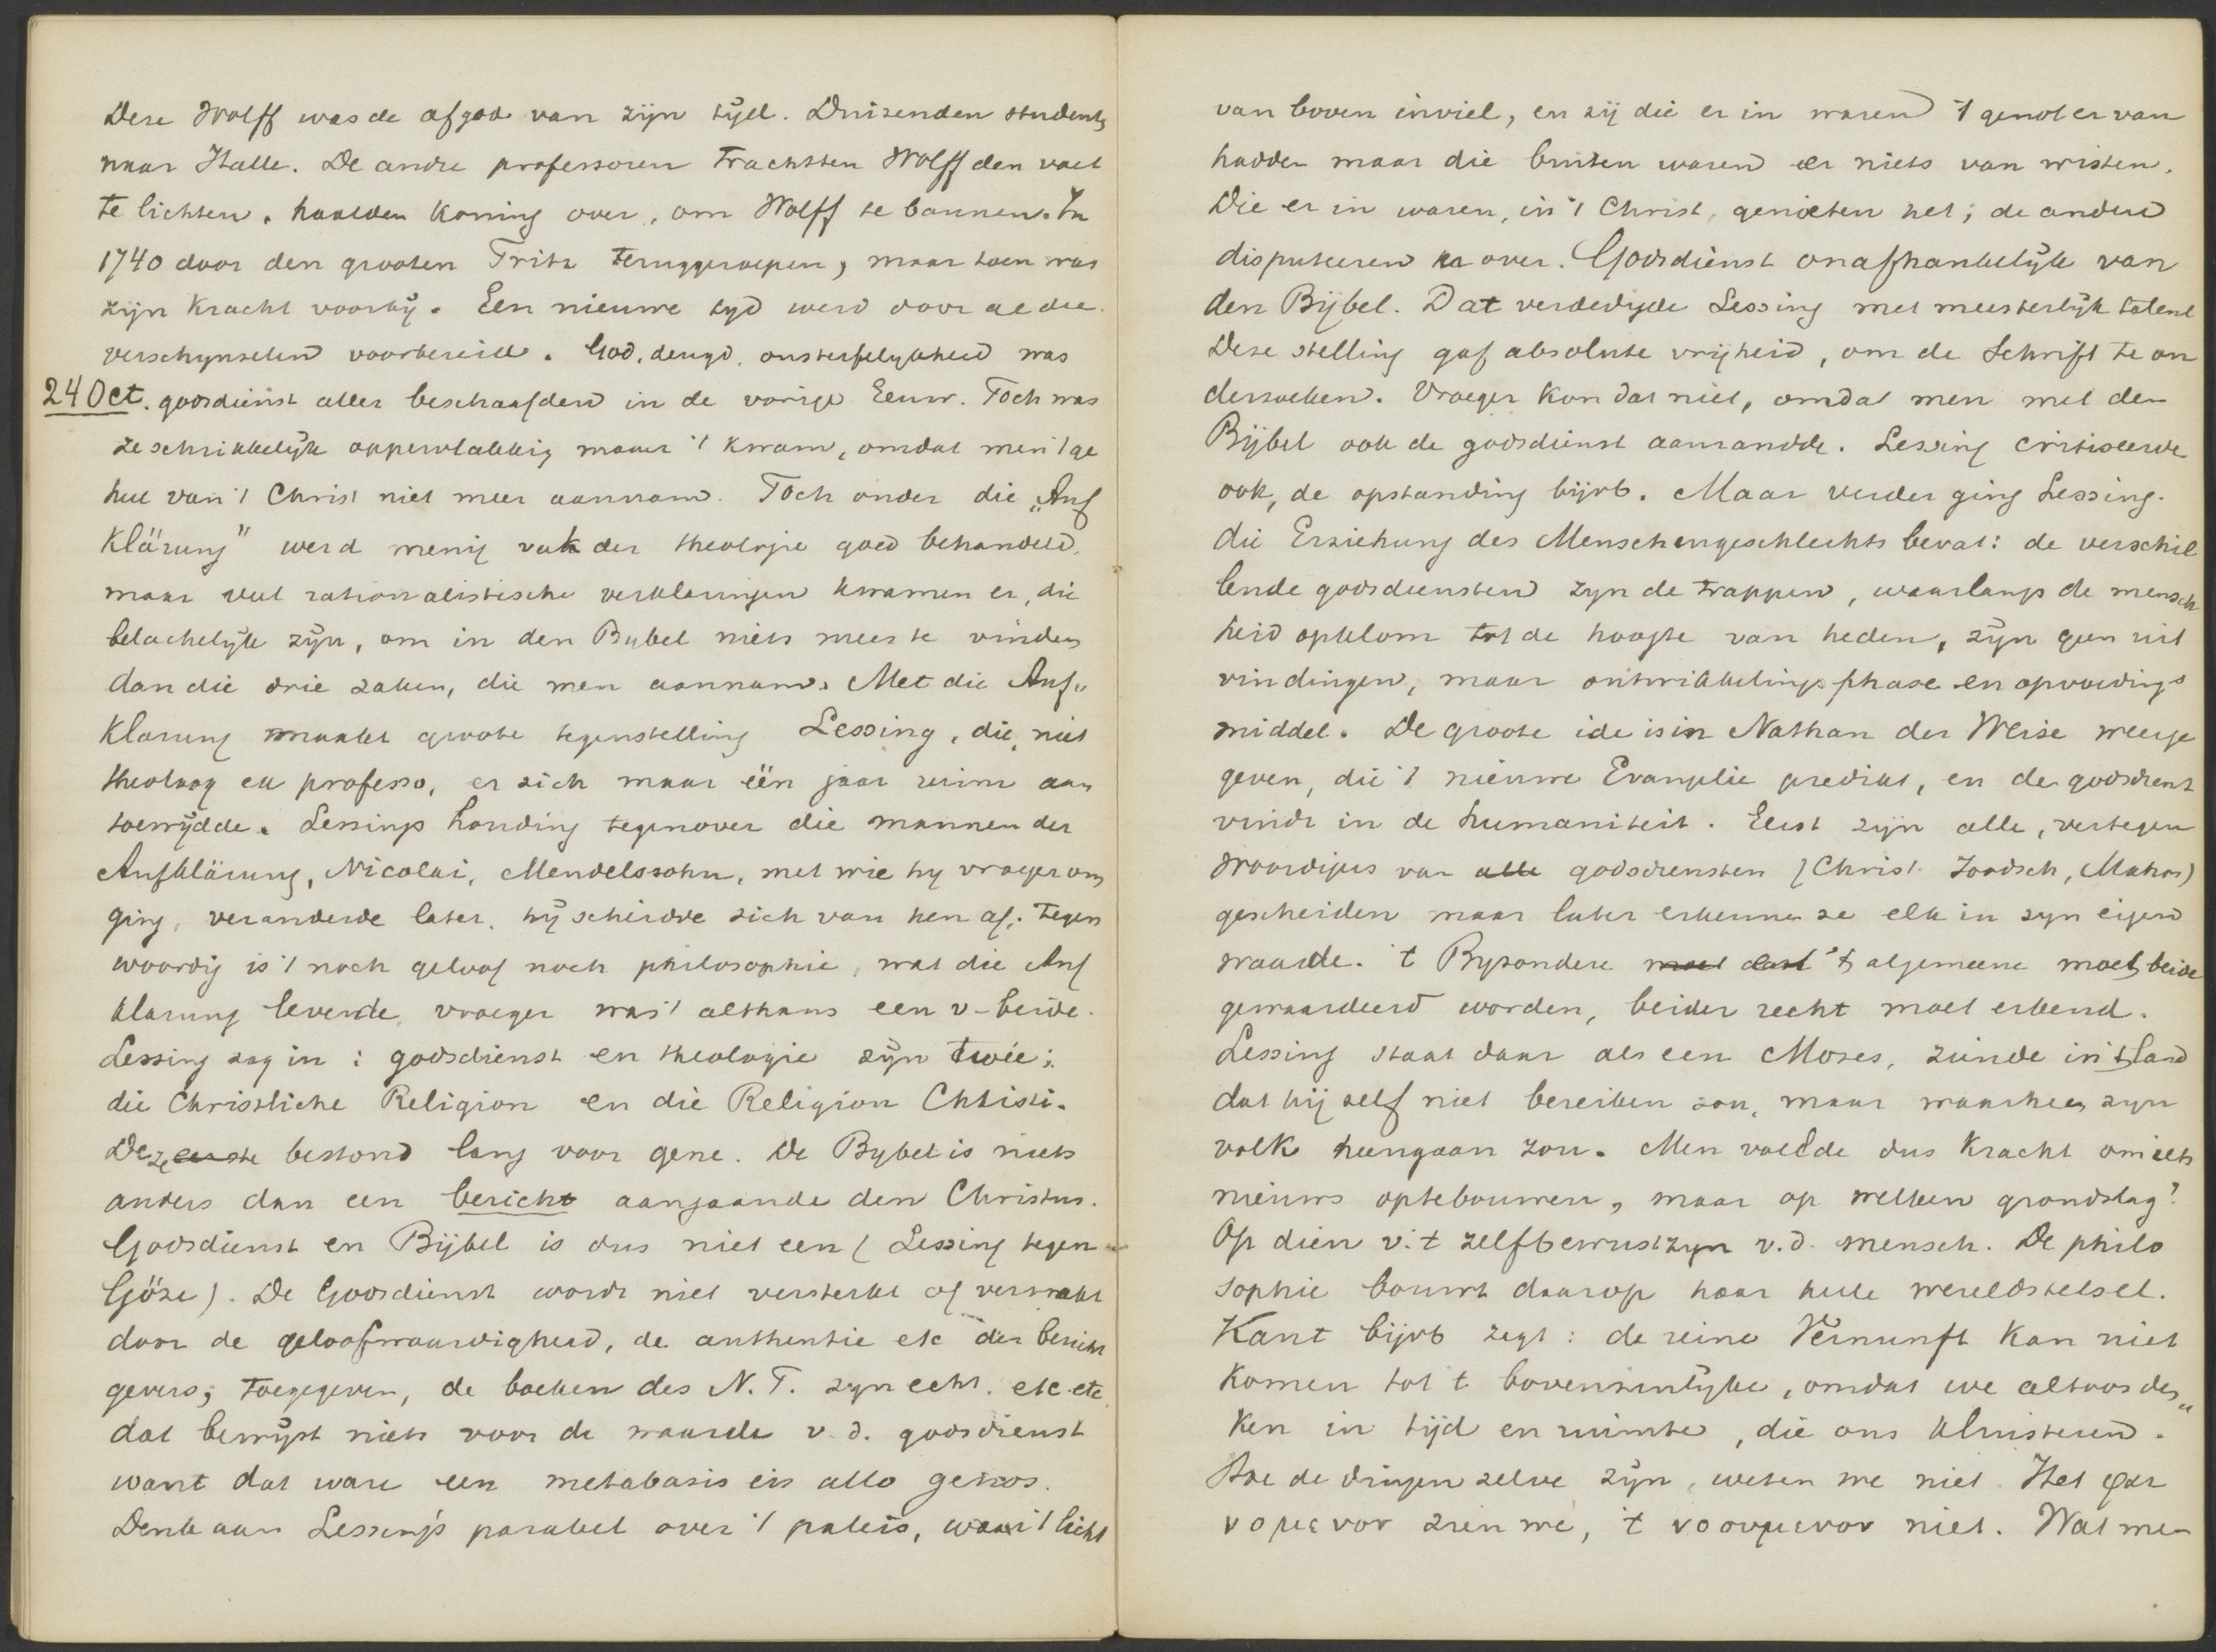 Deze Wolff was de afgod van zijn tijd. Duizenden students
naar Halle. De andre professoren trachtten Wolff den voet
te lichten, haalden koning over, om Wolff te bannen. In
1740 door den grooten Fritz teruggeroepen, maar toen was
zijn kracht voorbij. Een nieuwe tyd werd door al die
verschynselen voorbereid. God, deugd, onsterfelykheid was
24 Oct. godsdienst aller beschaafden in de vorige Eeuw. Toch was
ze schrikkelijk oppervlakkig maar 't kwam, omdat men 't ge
heel van 't Christ niet meer aannam. Toch onder die „Auf
klärung" werd menig vak der theologie goed behandeld,
maar veel rationalistische verklaringen kwamen er, die
belachelijk zijn, om in den Bybel niets meer te vinden
dan die drie zaken, die men aannam. Met die Auf„
klarung maakte groote tegenstelling Lessing, die, niet
theoloog ex professo, er zich maar één jaar ruim aan
toewijdde. Lessings houding tegenover die mannen der
Aufklärung, Nicolai, Mendelssohn, met wie hy vroeger om
ging, veranderde later. hij scheidde zich van hen af: tegen
woordig is 't noch geloof noch philosophie, wat die Auf
klarung leverde, vroeger was 't althans een v. beide.
Lessing zag in: godsdienst en theologie zijn twée;
die Christliche Religion en die Religion Christi.
Deze eerste bestond lang voor gene. De Bybel is niets
anders dan een bericht aangaande den Christus.
Godsdienst en Bijbel is dus niet een (Lessing tegen
Göze). De Godsdienst wordt niet versterkt of verzwakt
door de geloofwaardigheid, de authentie etc der bericht
gevers; toegegeven, de boeken des N.T. zyn echt. etc etc
dat bewijst niets voor de waarde v.d. godsdienst
want dat ware een metabasis eis allo genos.
Denk aan Lessing's parabel over 't paleis, waar 't licht
van boven inviel, en zij die er in waren 't genot er van
hadden maar die buiten waren er niets van wisten.
Die er in waren, in 't Christ, genieten het; de anderen
disputeeren er over. Godsdienst onafhankelijk van
den Bijbel. Dat verdedigde Lessing met meesterlijk talent
Deze stelling gaf absolute vrijheid, om de Schrift te on
derzoeken. Vroeger kon dat niet, omdat men met den
Bijbel ook de godsdienst aanrandde. Lessing critiseerde
ook, de opstanding bijvb. Maar verder ging Lessing.
die Erziehung des Menschengeschlechts bevat: de verschil
lende godsdiensten zyn de trappen, waarlangs de mensch
heid opklom tot de hoogte van heden, zijn geen uit
vindingen, maar ontwikkelings phase en opvoedings
middel. De groote ide is in Nathan der Weise weerge
geven, die 't nieuwe Evangelie predikt, en de godsdienst
vindt in de humaniteit. Eerst zijn alle, vertegen
woordigers van alle godsdiensten (Christ. Joodsch, Maham)
gescheiden maar later erkennen ze elk in zyn eigen
waarde. 't Byzondere moet 't algemeene moet beide
gewaardeerd worden, beider recht moet erkend.
Lessing staat daar als een Mozes, ziende in 't land
dat hij zelf niet bereiken zou, maar waarheen zyn
volk heengaan zou. Men voelde dus kracht om iets
nieuws optebouwen, maar op welken grondslag?
Op dien v. 't zelfbewustzyn v.d. mensch. De philo
sophie bouwt daarop haar heele wereldstelsel.
Kant bijvb zegt: de reine Vernunft kan niet
komen tot 't bovenzinlijke, omdat we altoos den„
ken in tijd en ruimte, die ons kluisteren.
Hoe de dingen zelve zijn, weten we niet. Het φαι
νομενον zien we, 't νοουμενον niet. Wat men